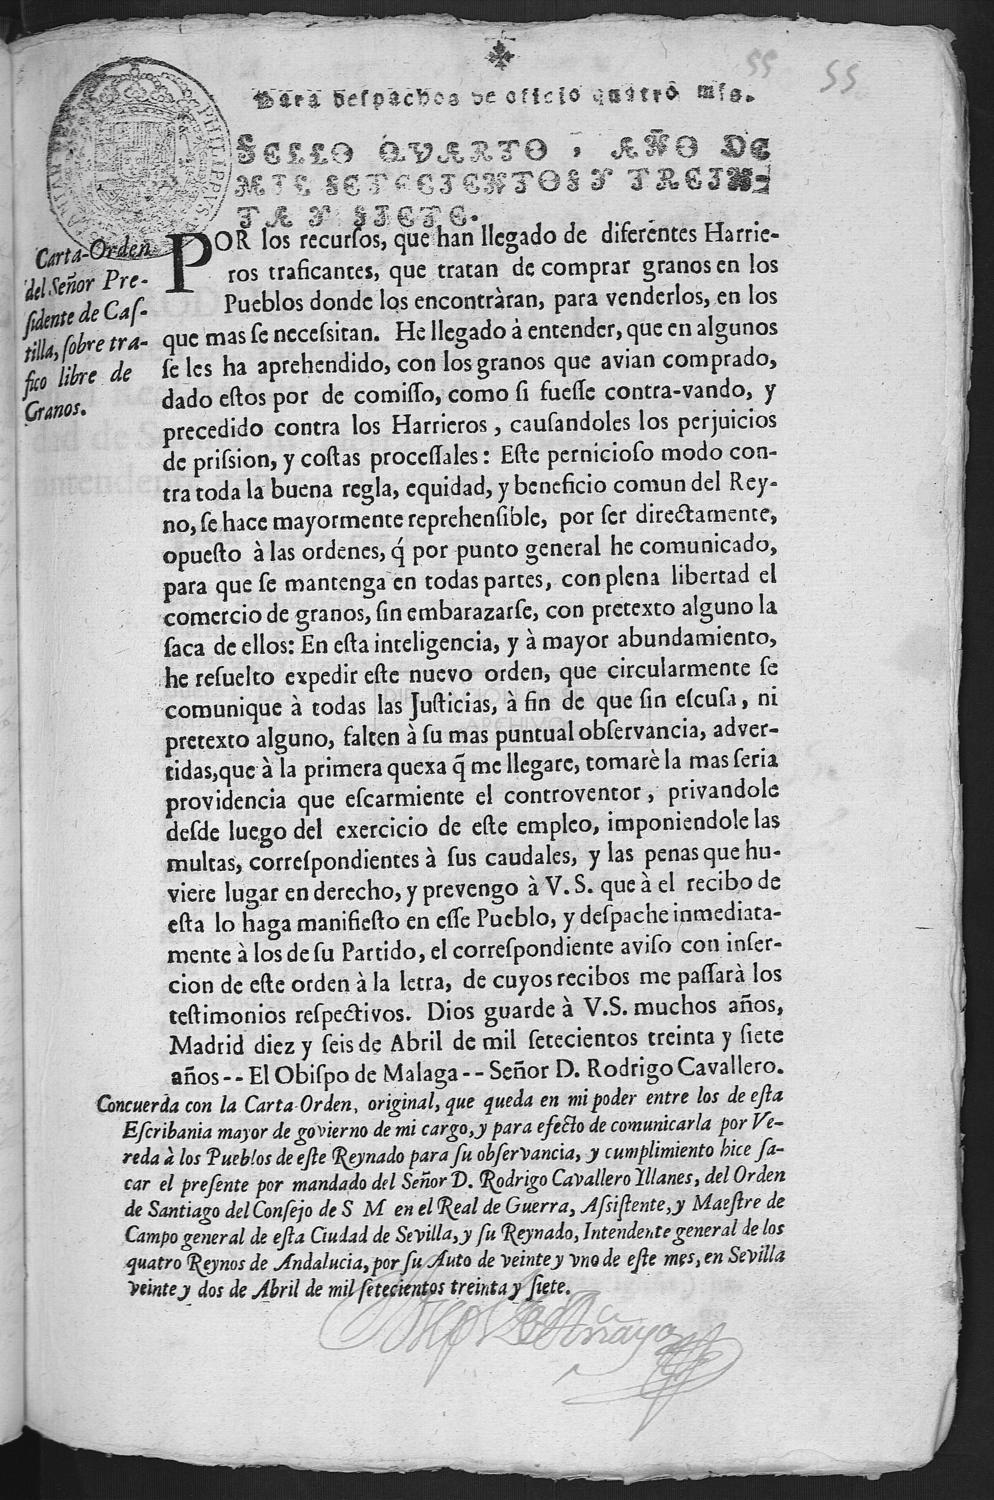 55 55
Para despachos de oficio quatro mrs.
SELLO QVARTO, AÑO DE
MIL SETECIENTOS Y TREIN-
TA Y SIETE.
PHILIPPVS
Carta-Orden
del Señor Pre-
sidente de Cas-
tilla, sobre tra-
fico libre de
Granos.
POR los recursos, que han llegado de diferentes Harrie-
ros traficantes, que tratan de comprar granos en los
Pueblos donde los encontràran, para venderlos, en los
que mas se necessitan. He llegado à entender, que en algunos
se les ha aprehendido, con los granos que avian comprado,
dado estos por de comisso, como si fuesse contra-vando, y
precedido contra los Harrieros, causandoles los perjuicios
de prission, y costas processales: Este pernicioso modo con-
tra toda la buena regla, equidad, y beneficio comun del Rey-
no, se hace mayormente reprehensible, por ser directamente,
opuesto à las ordenes, q̃ por punto general he comunicado,
para que se mantenga en todas partes, con plena libertad el
comercio de granos, sin embarazarse, con pretexto alguno la
saca de ellos: En esta inteligencia, y à mayor abundamiento,
he resuelto expedir este nuevo orden, que circularmente se
comunique à todas las Justicias, à fin de que sin escusa, ni
pretexto alguno, falten à su mas puntual observancia, adver-
tidas, que à la primera quexa q̃ me llegare, tomarè la mas seria
providencia que escarmiente el controventor, privandole
desde luego del exercicio de este empleo, imponiendole las
multas, correspondientes à sus caudales, y las penas que hu-
viere lugar en derecho, y prevengo à V. S. que à el recibo de
esta lo haga manifiesto en esse Pueblo, y despache inmediata-
mente à los de su Partido, el correspondiente aviso con inser-
cion de este orden à la letra, de cuyos recibos me passarà los
testimonios respectivos. Dios guarde à V.S. muchos años,
Madrid diez y seis de Abril de mil setecientos treinta y siete
años -- El Obispo de Malaga -- Señor D. Rodrigo Cavallero.
Concuerda con la Carta-Orden, original, que queda en mi poder entre los de esta
Escribania mayor de govierno de mi cargo, y para efecto de comunicarla por Ve-
reda à los Pueblos de este Reynado para su observancia, y cumplimiento hice sa-
car el presente por mandado del Señor D. Rodrigo Cavallero Yllanes, del Orden
de Santiago del Consejo de S M en el Real de Guerra, Assistente, y Maestre de
Campo general de esta Ciudad de Sevilla, y su Reynado, Intendente general de los
quatro Reynos de Andalucia, por su Auto de veinte y vno de este mes, en Sevilla
veinte y dos de Abril de mil setecientos treinta y siete.